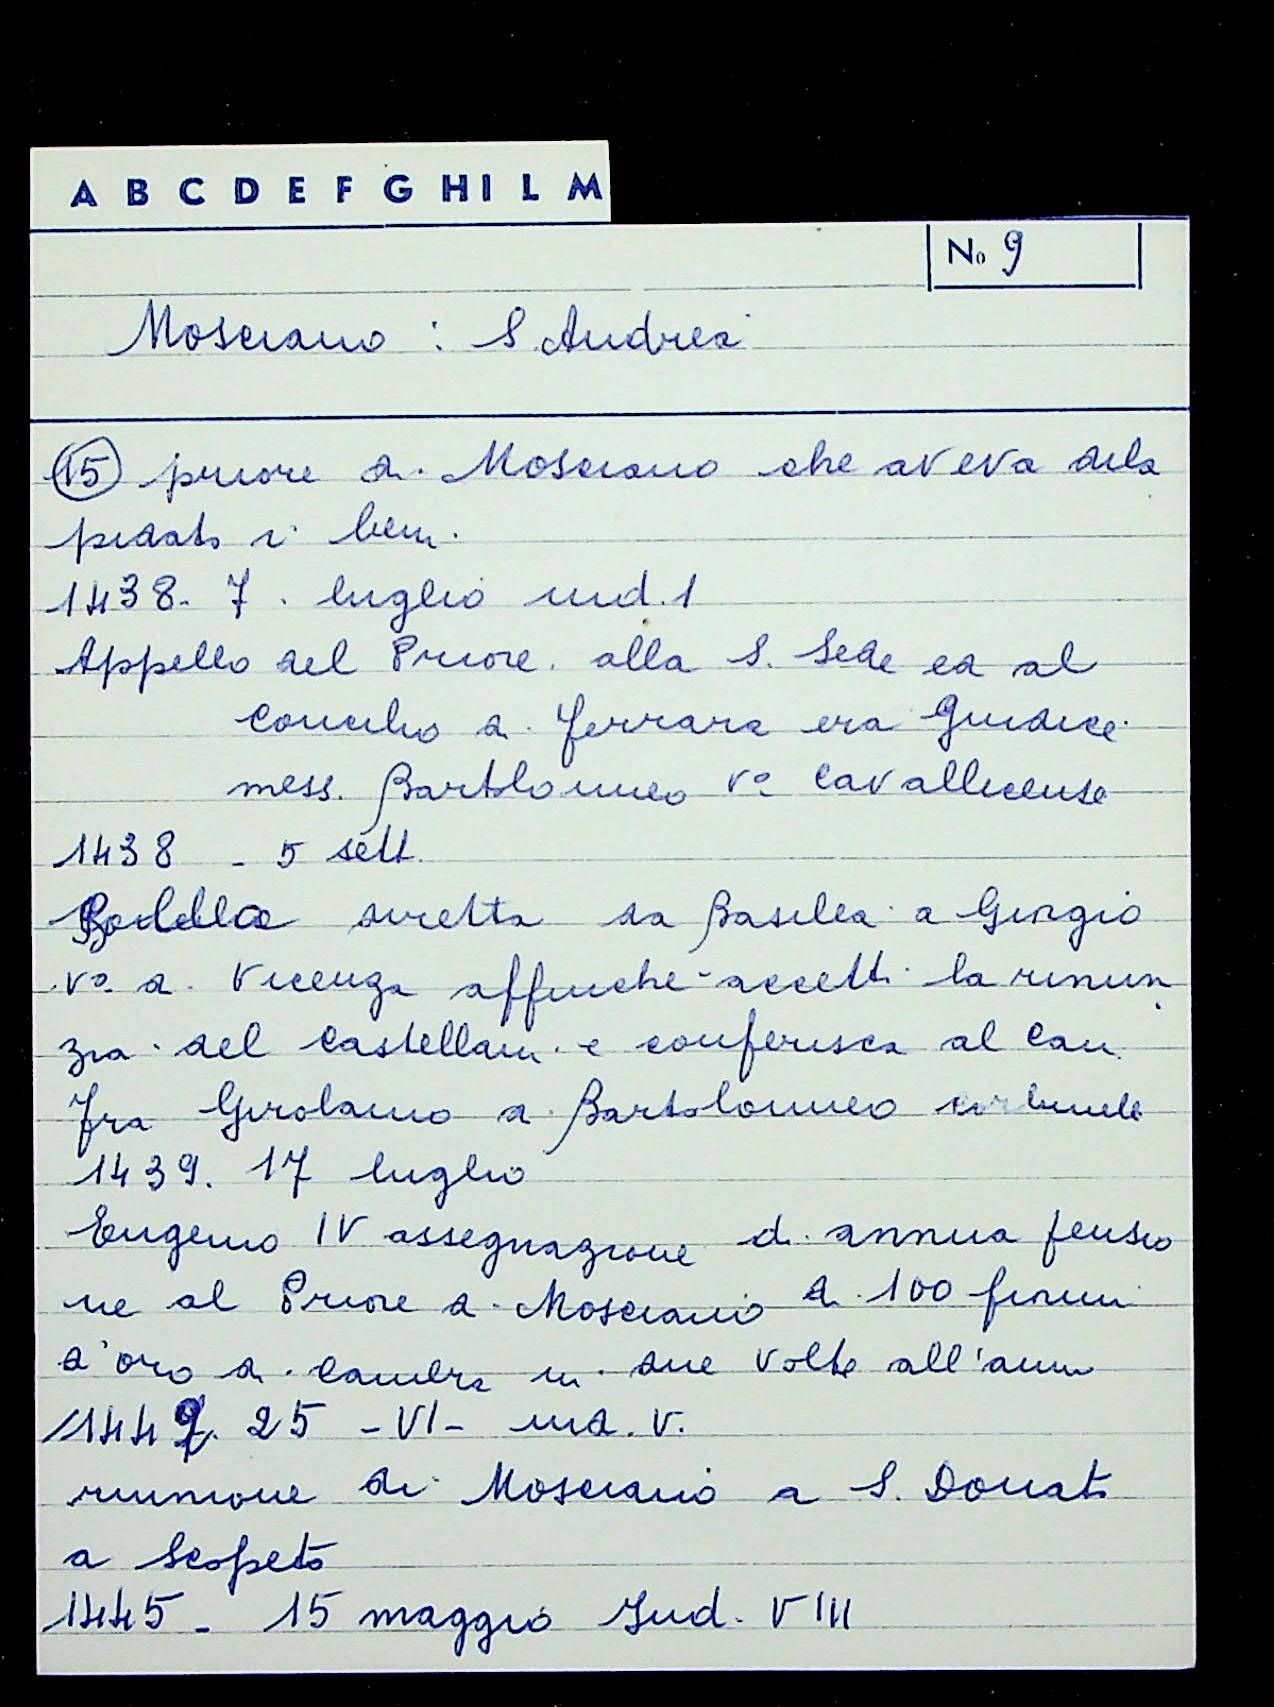 A B C D E F G H I L M
No 9
Mosciano : S. Andrea
15 priore di Mosciano che aveva dila
pidato i beni
1438. 7. luglio ind. 1
Appello del Priore alla S. Sede ed al
concilio di Ferrara era Giudice
mess. Bartolomeo Vo Cavallicense
1438 - 5 sett.
Bolla diretta da Basilea a Giorgio
Vo di Vicenza affinché accetti la rinun
zia del Castellani e conferisca al Can.
fra Girolamo di Bartolomeo
1439. 17 luglio
Eugenio IV assegnazione di annua pensio
ne al Priore di Mosciano di 100 fiorini
d'oro di camera in due volte all'anno
1442. 25 - VI - ind. V.
riunione di Mosciano a S. Donato
a Scopeto
1445 - 15 maggio Ind. VIII